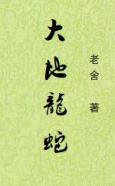 大地龍蛇
老舍 著